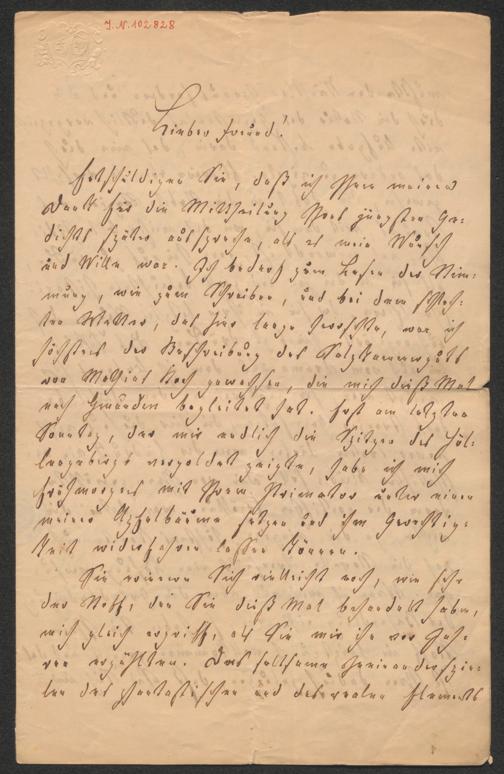 I. N. 102828
Lieber Freund!
Entschuldigen Sie, daß ich Ihnen meinen
Dank für die Mittheilung Ihres jüngsten Ge-
dichts später ausspreche, als es mein Wunsch
und Wille war. Ich bedarf zum Lesen der Stim-
mung, wie zum Schreiben, und bei dem schlech-
ten Wetter, das hier lange herrschte, war ich
höchstens der Beschreibung des Salzkammerguts
von Mathias Koch gewachsen, die mich dieß Mal
nach Gmunden begleitet hat. Erst am letzten
Sonntag, der mir endlich die Spitzen des Höl-
lengebirgs vergoldet zeigte, habe ich mich
frühmorgens mit Ihrem Primator unter einen
meiner Apfelbäume setzen und ihm Gerechtig-
keit widerfahren lassen können.
Sie erinnern Sich vielleicht noch, wie sehr
der Stoff, den Sie dieß Mal behandelt haben,
mich gleich ergriff, als Sie mir ihn vor Jah-
ren erzählten. Das seltsame Ineinanderspie-
len des phantastischen und des realen Elements